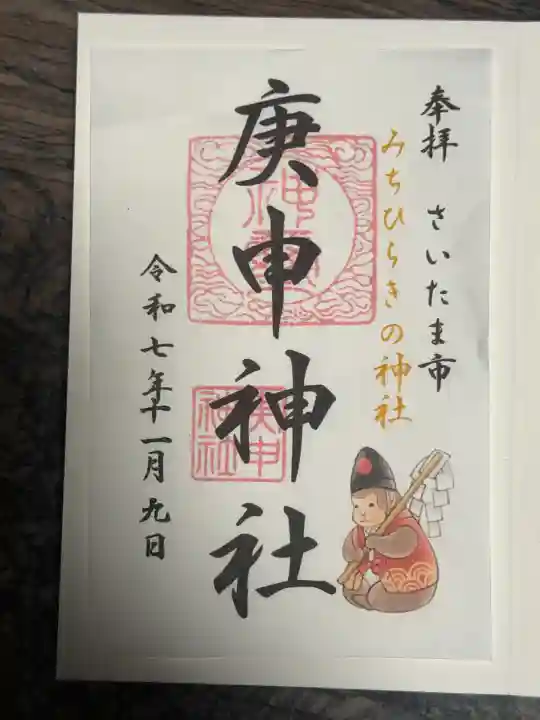 奉拝 さいたま市
みちひらきの神社
庚申神社
令和七年十一月九日
庚申
神社